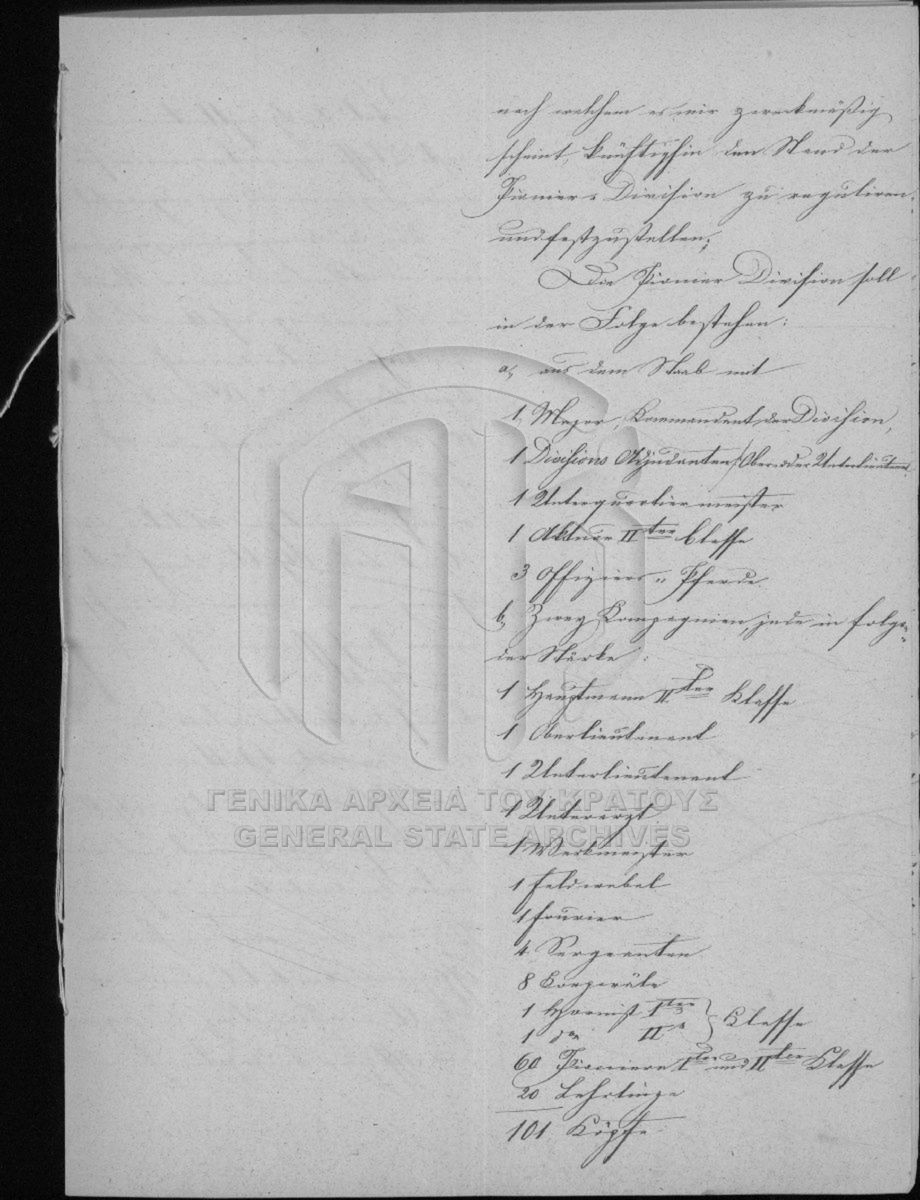 nach welchem es mir zweckmäßig
scheint, künftighin den Stand der
Pionier-Division zu reguliren,
und festzustellen;
Die Pionier Division soll
in der Folge bestehen:
a, aus dem Staab mit
1, Major, Kommandant der Division,
1 Divisions Adjudanten /Ober= oder Unterlieutenant
1 Unterquartiermeister
1 Aktuar II ter Classe
3 Offiziers = Pferde.
b, Zwey Kompagnien, jede in folgen-
der Stärke:
1 Hauptmann II. ter Klasse
1 Oberlieutenant
1 Unterlieutenant
ΓΕΝΙΚΑ ΑΡΧΕΙΑ ΤΟΥ ΚΡΑΤΟΥΣ
1 Unterarzt
GENERAL STATE ARCHIVES
1 Werkmeister
1 Feldwebel
1 Fourier
4 Sergeanten
8 Korporäle
1 Hornist I ter } Klasse
1 do II r
60 Pioniere I ter und II ter Klasse
20 Lehrlinge
101 Köpfe